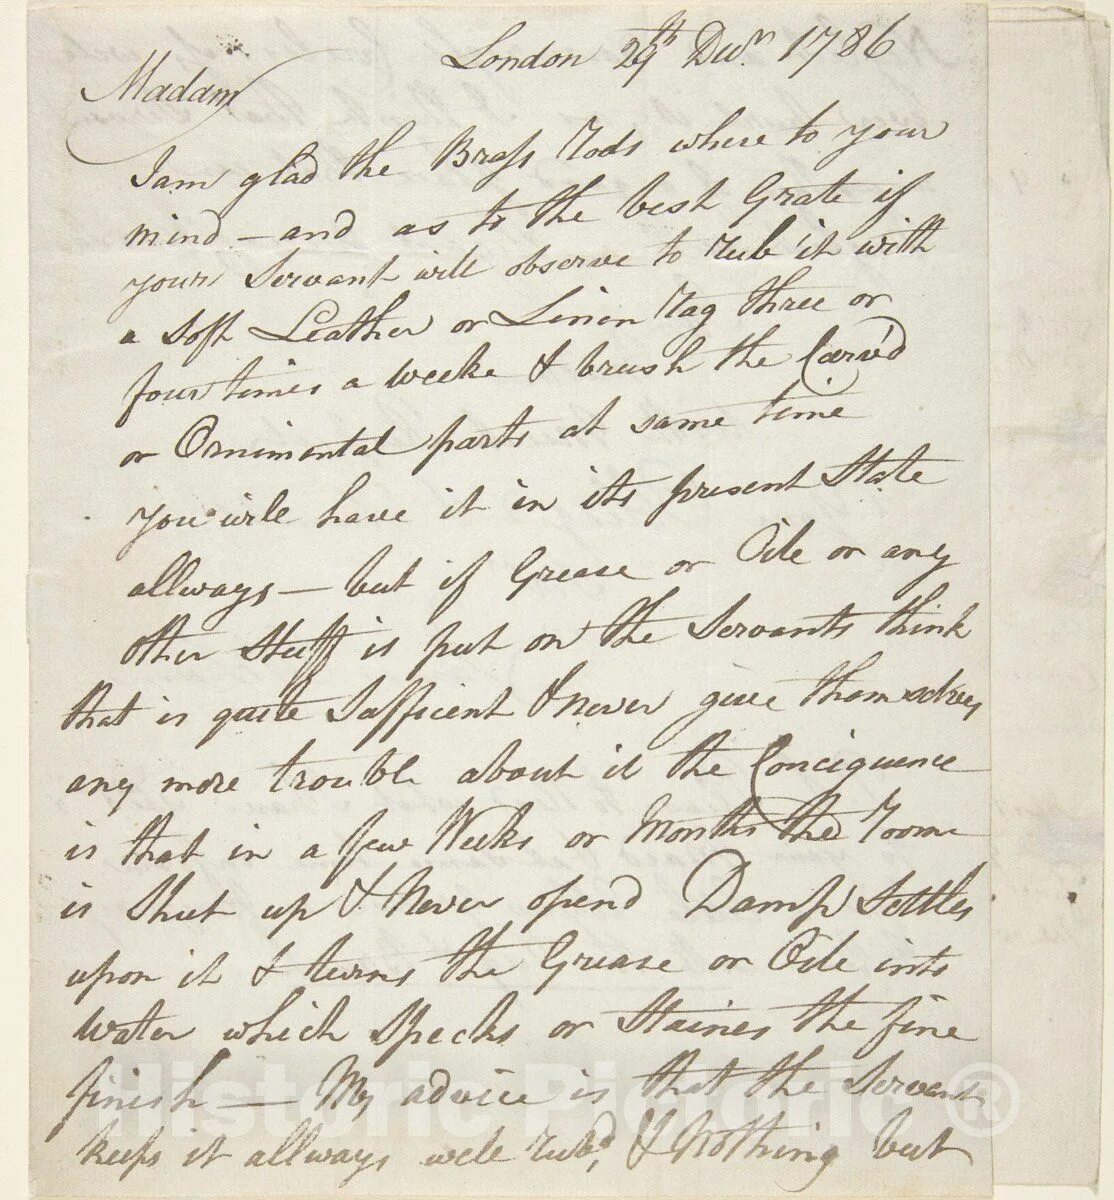 London 29th Decr. 1786
Madam
I am glad the Brass Rods where to your
mind — and as to the best Grate if
your Servant will observe to rub it with
a soft Leather or Linin Rag three or
four times a weeke & brush the Carv'd
or Ornimental parts at same time
you will have it in its present State
allways — but if Grease or Oile or any
other Stuff is put on the Servants think
that is quite Sufficient & never give themselves
any more trouble about it the Conciquence
is that in a few Weeks or Months the Room
is Shut up & Never opend Damp Settles
upon it & turns the Grease or Oile into
Water which Specks or Staines the fine
finish — My advice is that the Servant
keeps it allways well rub'd, & Nothing but
Historic Pictoric ®